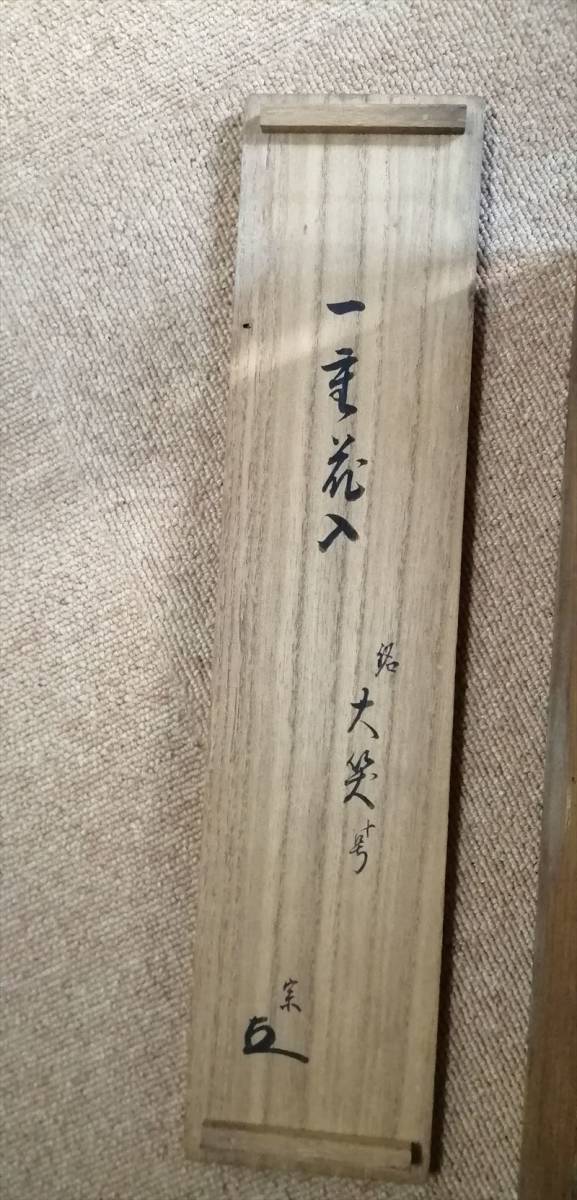 一重花入
銘 大笑 十号
宗